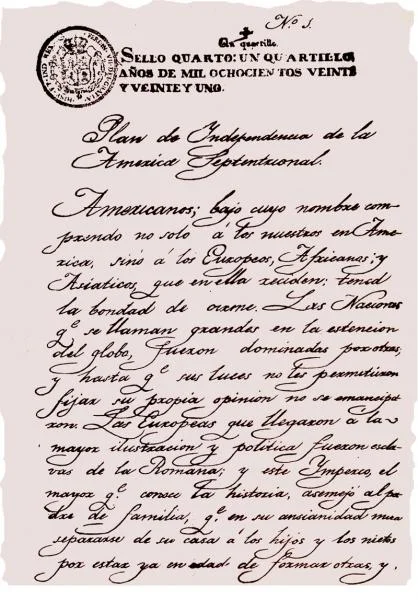 Nº 1.
Un quartillo.
SELLO QUARTO: UN QUARTILLO
AÑOS DE MIL OCHOCIENTOS VEINTE
Y VEINTE Y UNO.
Plan de Independencia de la
America Septentrional.
Americanos; bajo cuyo nombre com-
prendo no solo á los nuestros en Ame-
rica, sino á los Europeos, Africanos; y
Asiaticos, que en ella reciden: tened
la bondad de oirme. Las Naciones
q.e se llaman grandes en la estencion
del globo, fueron dominadas por otras;
y hasta q.e sus luces no les permitieron
fijar su propia opinion no se emancipa-
ron. Las Europeas que llegaron á la
mayor ilustracion y politica fueron escla-
vas de la Romana; y este Imperio, el
mayor q.e conoce la historia, asemejó al pa-
dre de familia, q.e en su ansianidad mira
separarse de su casa á los hijos y los nietos
por estar ya en edad de formar otras, y